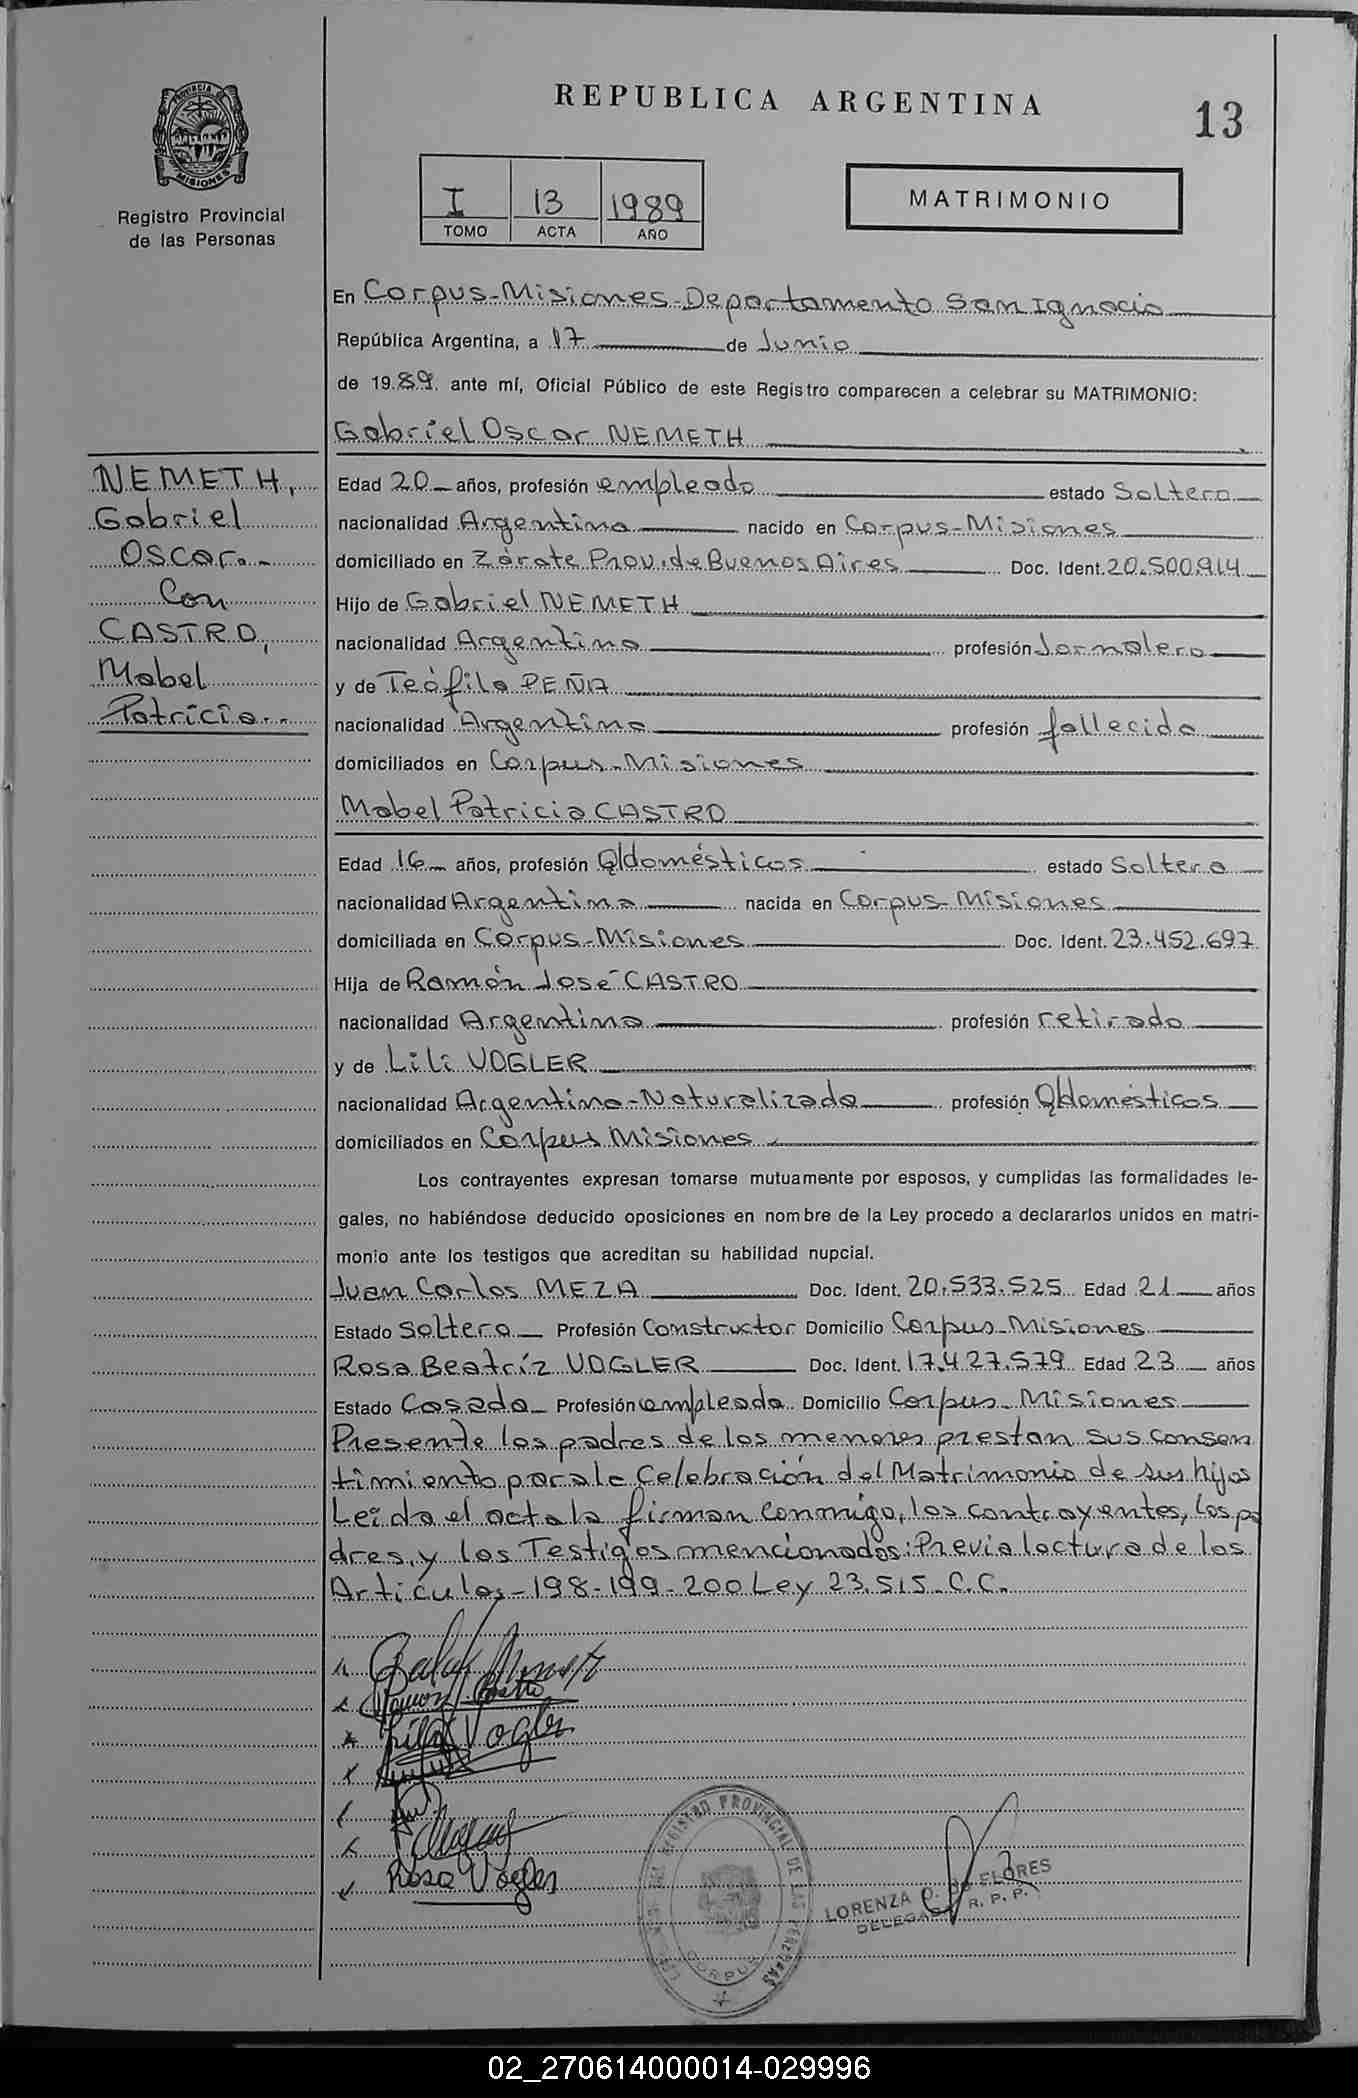 REPUBLICA ARGENTINA
13
PROVINCIA DE
MISIONES
Registro Provincial
de las Personas
I 13 1989
TOMO ACTA AÑO
MATRIMONIO
En Corpus-Misiones-Departamento San Ignacio
República Argentina, a 17 de Junio
de 1989. ante mí, Oficial Público de este Registro comparecen a celebrar su MATRIMONIO:
Gabriel Oscar NEMETH
NEMETH,
Gabriel
Oscar.-
Con
CASTRO,
Mabel
Patricia.-
Edad 20 años, profesión empleado estado Soltero
nacionalidad Argentina nacido en Corpus-Misiones
domiciliado en Zárate Prov. de Buenos Aires Doc. Ident. 20.500.914
Hijo de Gabriel NEMETH
nacionalidad Argentina profesión Jornalero
y de Teófila PEÑA
nacionalidad Argentina profesión fallecida
domiciliados en Corpus-Misiones
Mabel Patricia CASTRO
Edad 16 años, profesión Q/domésticos estado Soltera
nacionalidad Argentina nacida en Corpus-Misiones
domiciliada en Corpus-Misiones Doc. Ident. 23.452.697
Hija de Ramón José CASTRO
nacionalidad Argentina profesión retirado
y de Lili VOGLER
nacionalidad Argentina-Naturalizada profesión Q/domésticos
domiciliados en Corpus Misiones
Los contrayentes expresan tomarse mutuamente por esposos, y cumplidas las formalidades le-
gales, no habiéndose deducido oposiciones en nombre de la Ley procedo a declararlos unidos en matri-
monio ante los testigos que acreditan su habilidad nupcial.
Juan Carlos MEZA Doc. Ident. 20.533.525 Edad 21 años
Estado Soltero Profesión Constructor Domicilio Corpus-Misiones
Rosa Beatríz VOGLER Doc. Ident. 17.427.579 Edad 23 años
Estado Casada Profesión empleada Domicilio Corpus-Misiones
Presente los padres de los menores prestan sus consen
timiento para la Celebración del Matrimonio de sus hijos
Leída el acta la firman conmigo, los contrayentes, los pa
dres, y los Testigos mencionados: Previa lectura de los
Artículos-198-199-200 Ley 23.515-C.C.
Ramon J. Castro
Lili Vogler
Rosa Vogler
REGISTRO PROVINCIAL DE LAS PERSONAS
CORPUS
LORENZA D. DE FLORES
DELEGADA R. P. P.
02_270614000014-029996